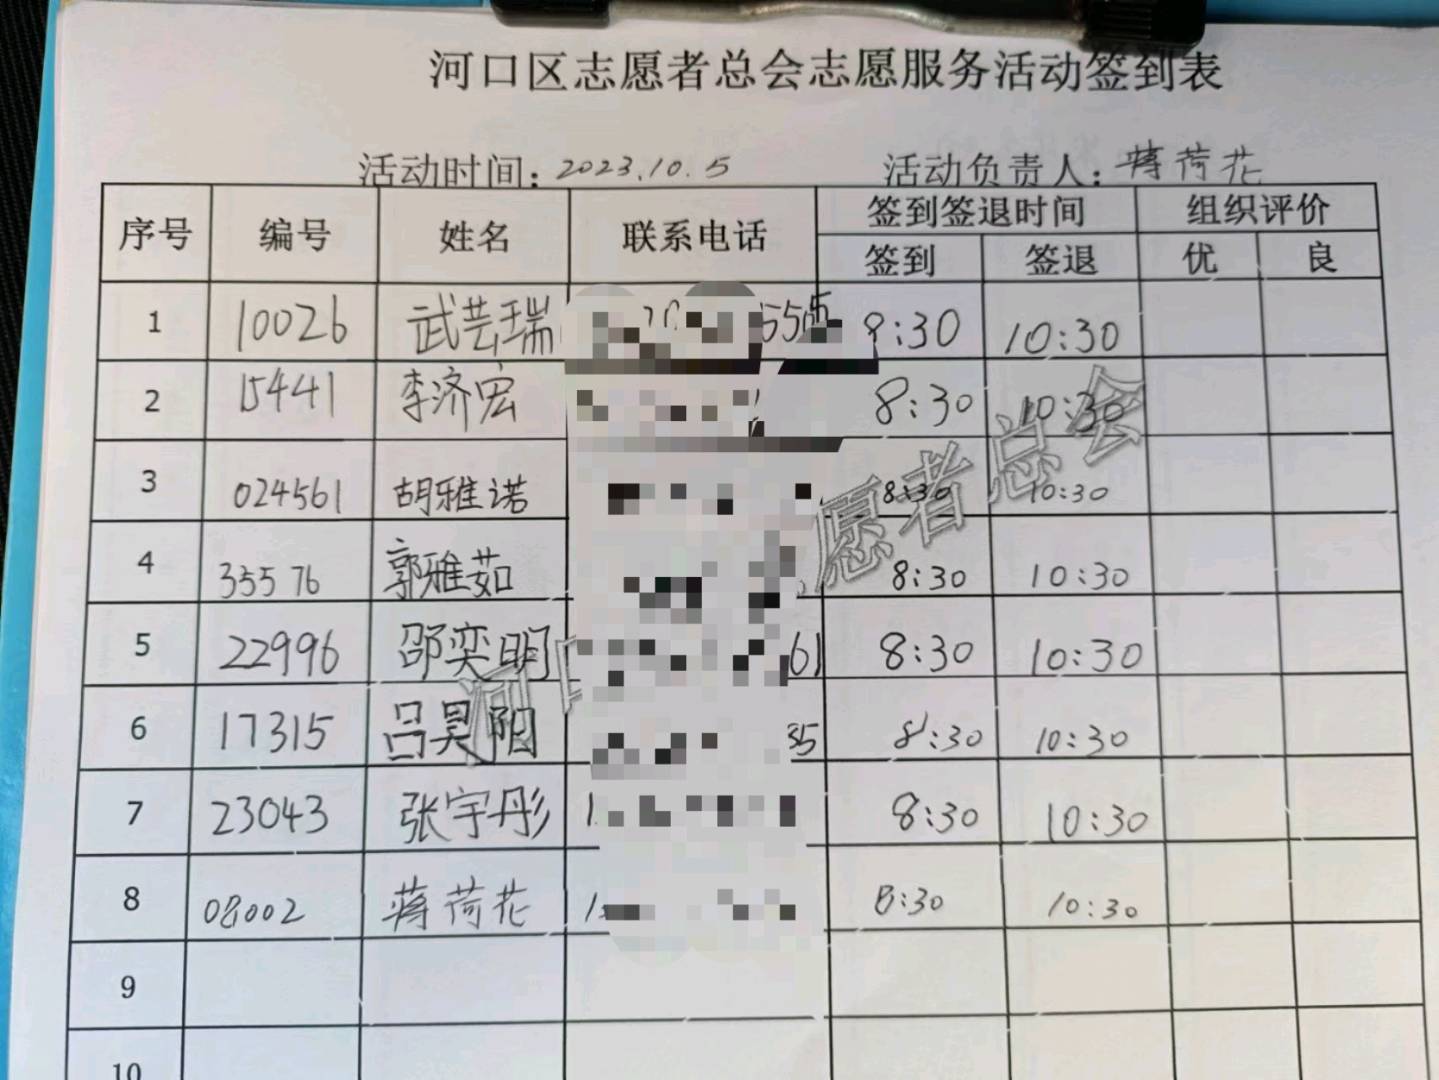 河口区志愿者总会志愿服务活动签到表
活动时间：2023.10.5 活动负责人：蒋荷花
序号 编号 姓名 联系电话 签到签退时间 组织评价
签到 签退 优 良
1 10026 武芸瑞 8:30 10:30
2 15441 李济宏 8:30 10:30
3 024561 胡雅诺 8:30 10:30
4 35576 郭雅茹 8:30 10:30
5 22996 邵奕明 61 8:30 10:30
6 17315 吕昊阳 35 8:30 10:30
7 23043 张宇彤 8:30 10:30
8 08002 蒋荷花 8:30 10:30
9
10
愿者总会